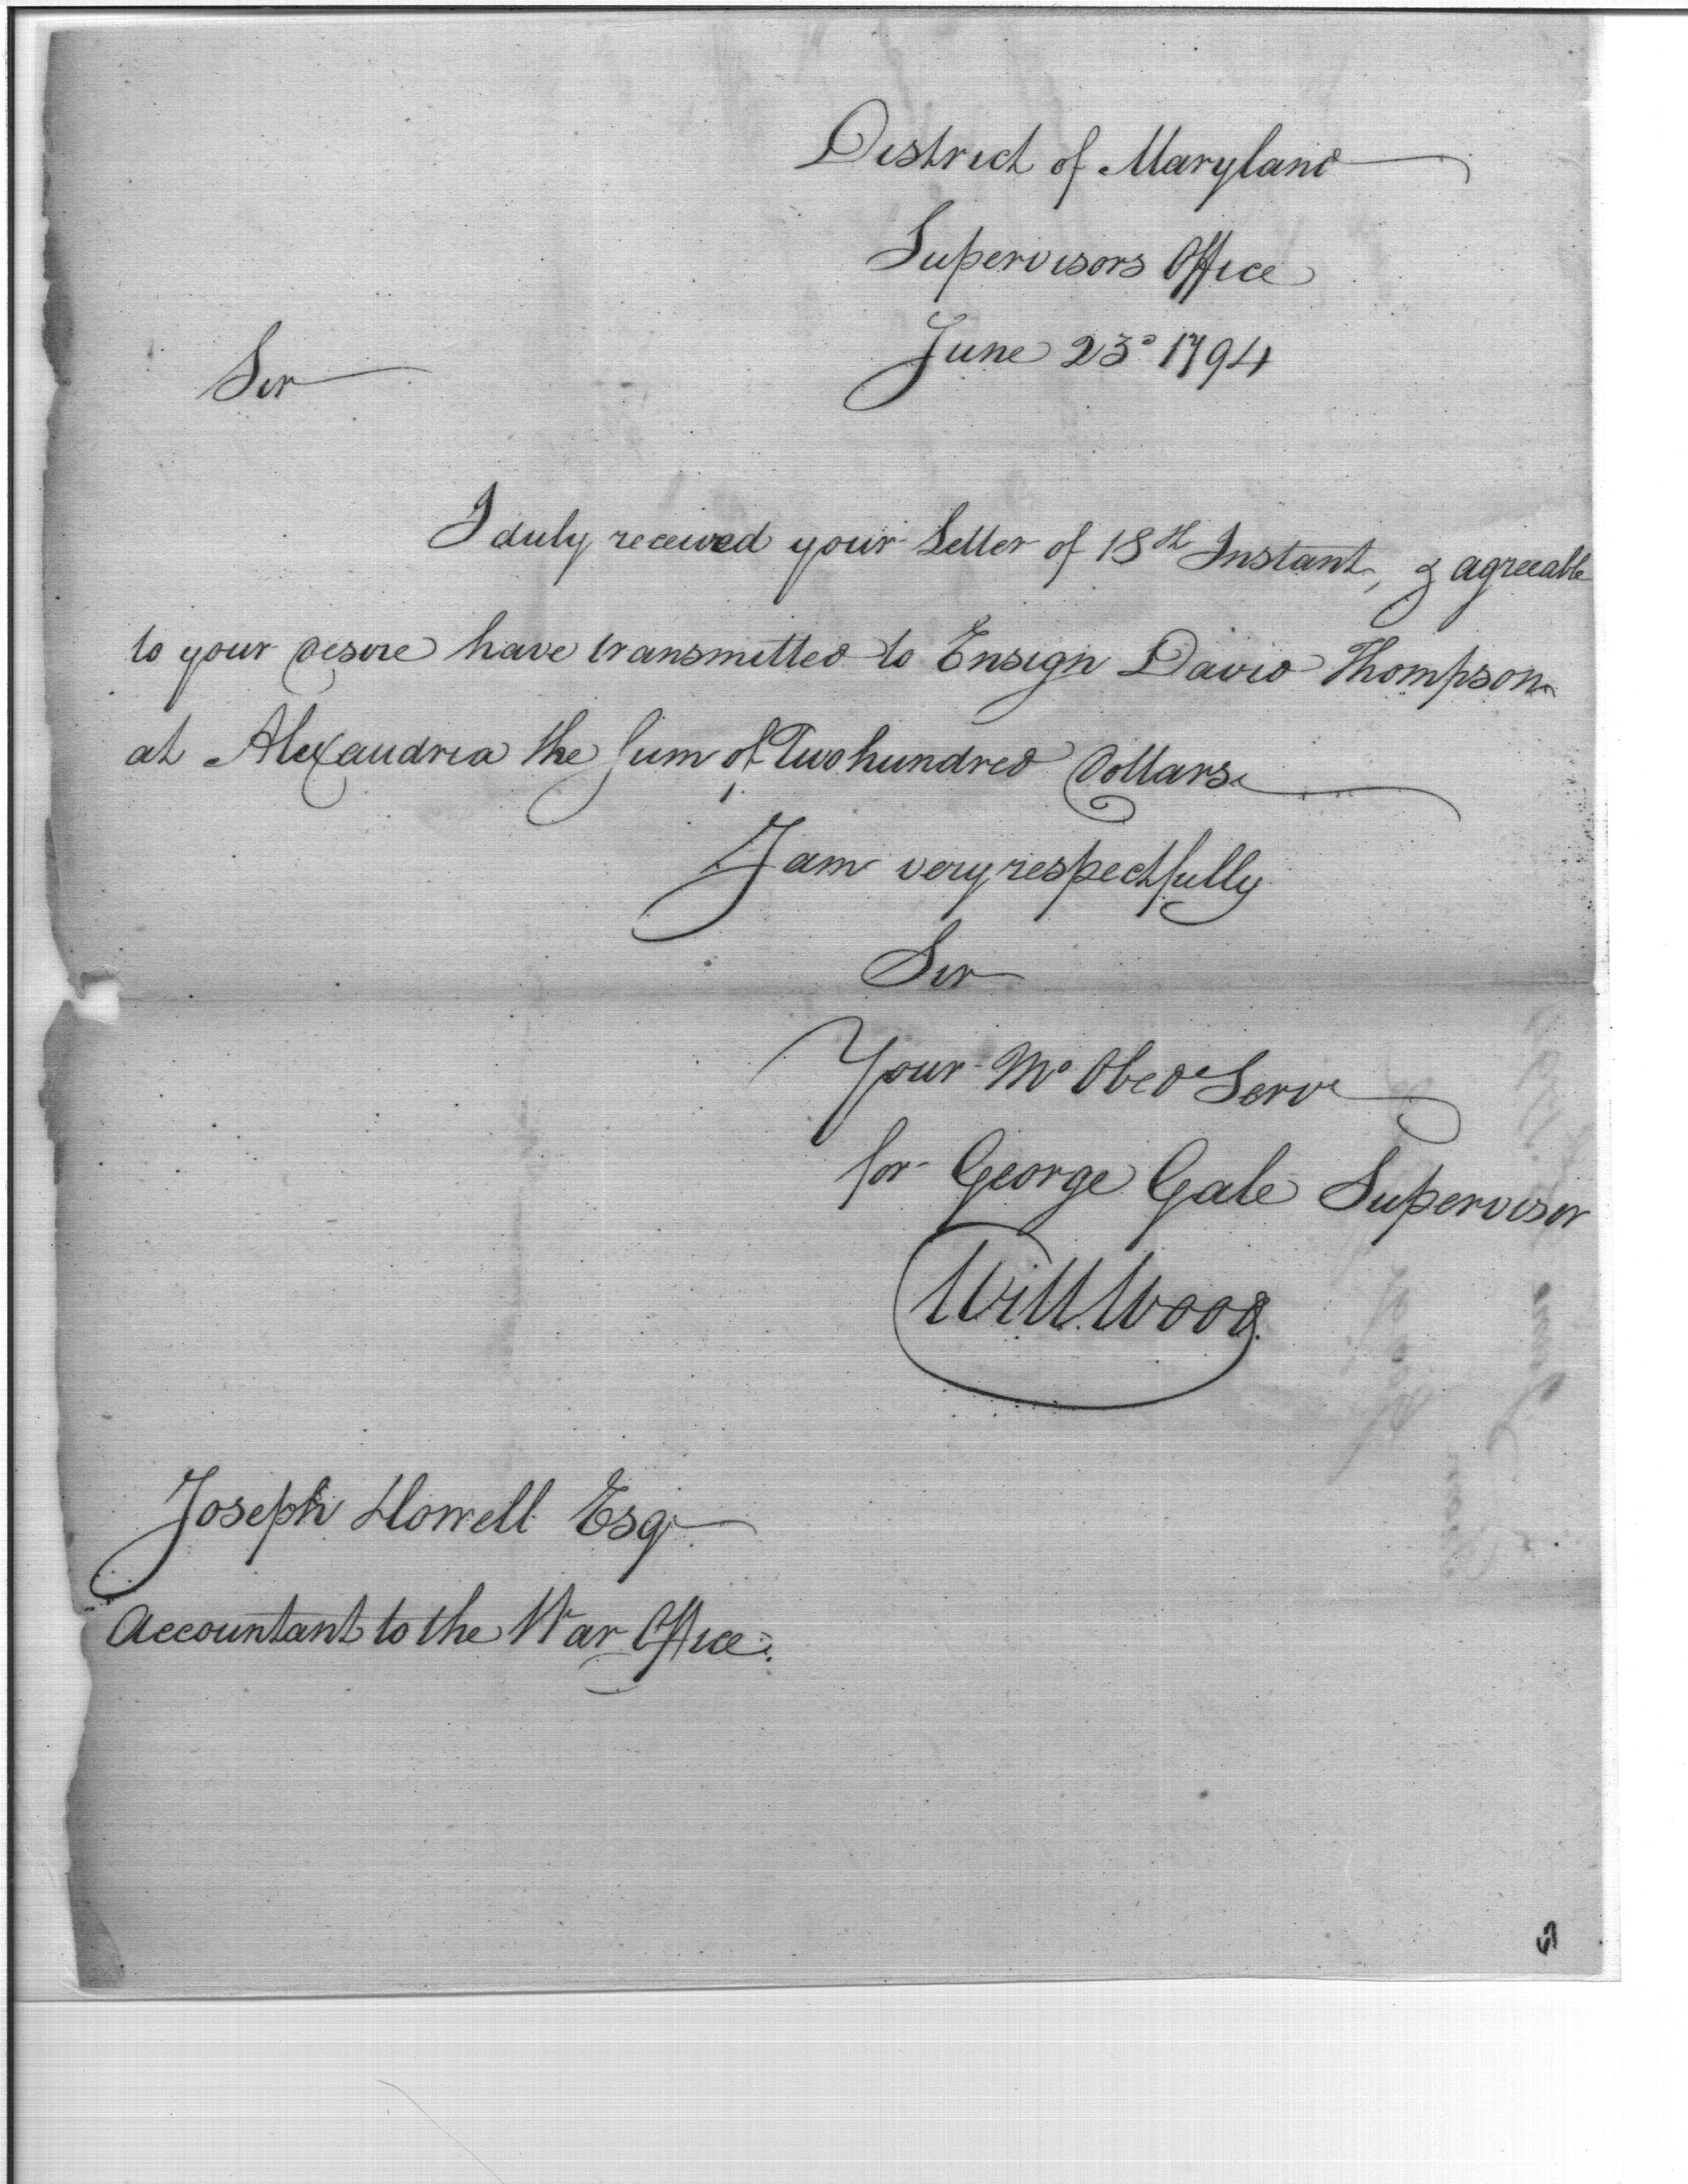 District of Maryland
Supervisors Office
June 23d 1794
Sir
I duly received your Letter of 18th Instant, & agreeable
to your desire have transmitted to Ensign David Thompson
at Alexandria the Sum of Two hundred Dollars
I am very respectfully
Sir
Your Mo Obed Serv
for George Gale Supervisor
Will Wood.
Joseph Howell Esqr
Accountant to the War Office.